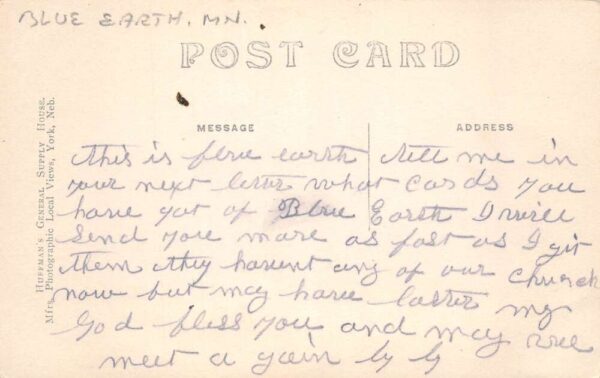 BLUE EARTH, MN.
POST CARD
MESSAGE
ADDRESS
HUFFMAN'S GENERAL SUPPLY HOUSE.
Mfrs. Photographic Local Views, York, Neb.
this is blue earth tell me in
your next letter what cards you
have got of Blue Earth I will
send you more as fast as I git
them they havent any of our church
now but may have latter my
God bless you and may wee
meet a gain by by